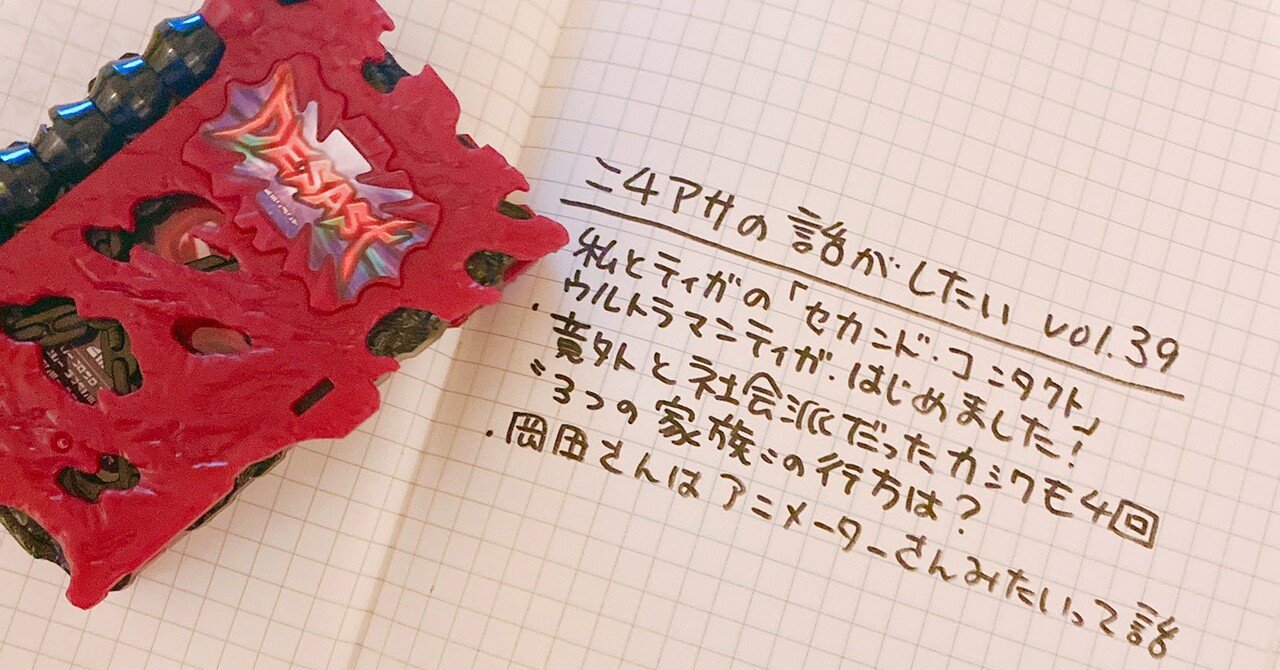 DESAST
ニ4アサの話がしたい vol.39
私とティガの「セカンド・コンタクト」
・ウルトラマンティガ、はじめました!
意外と社会派だったカシワモ4回
〝3つの家族〟の行方は?
・岡田さんはアニメーターさんみたいって話